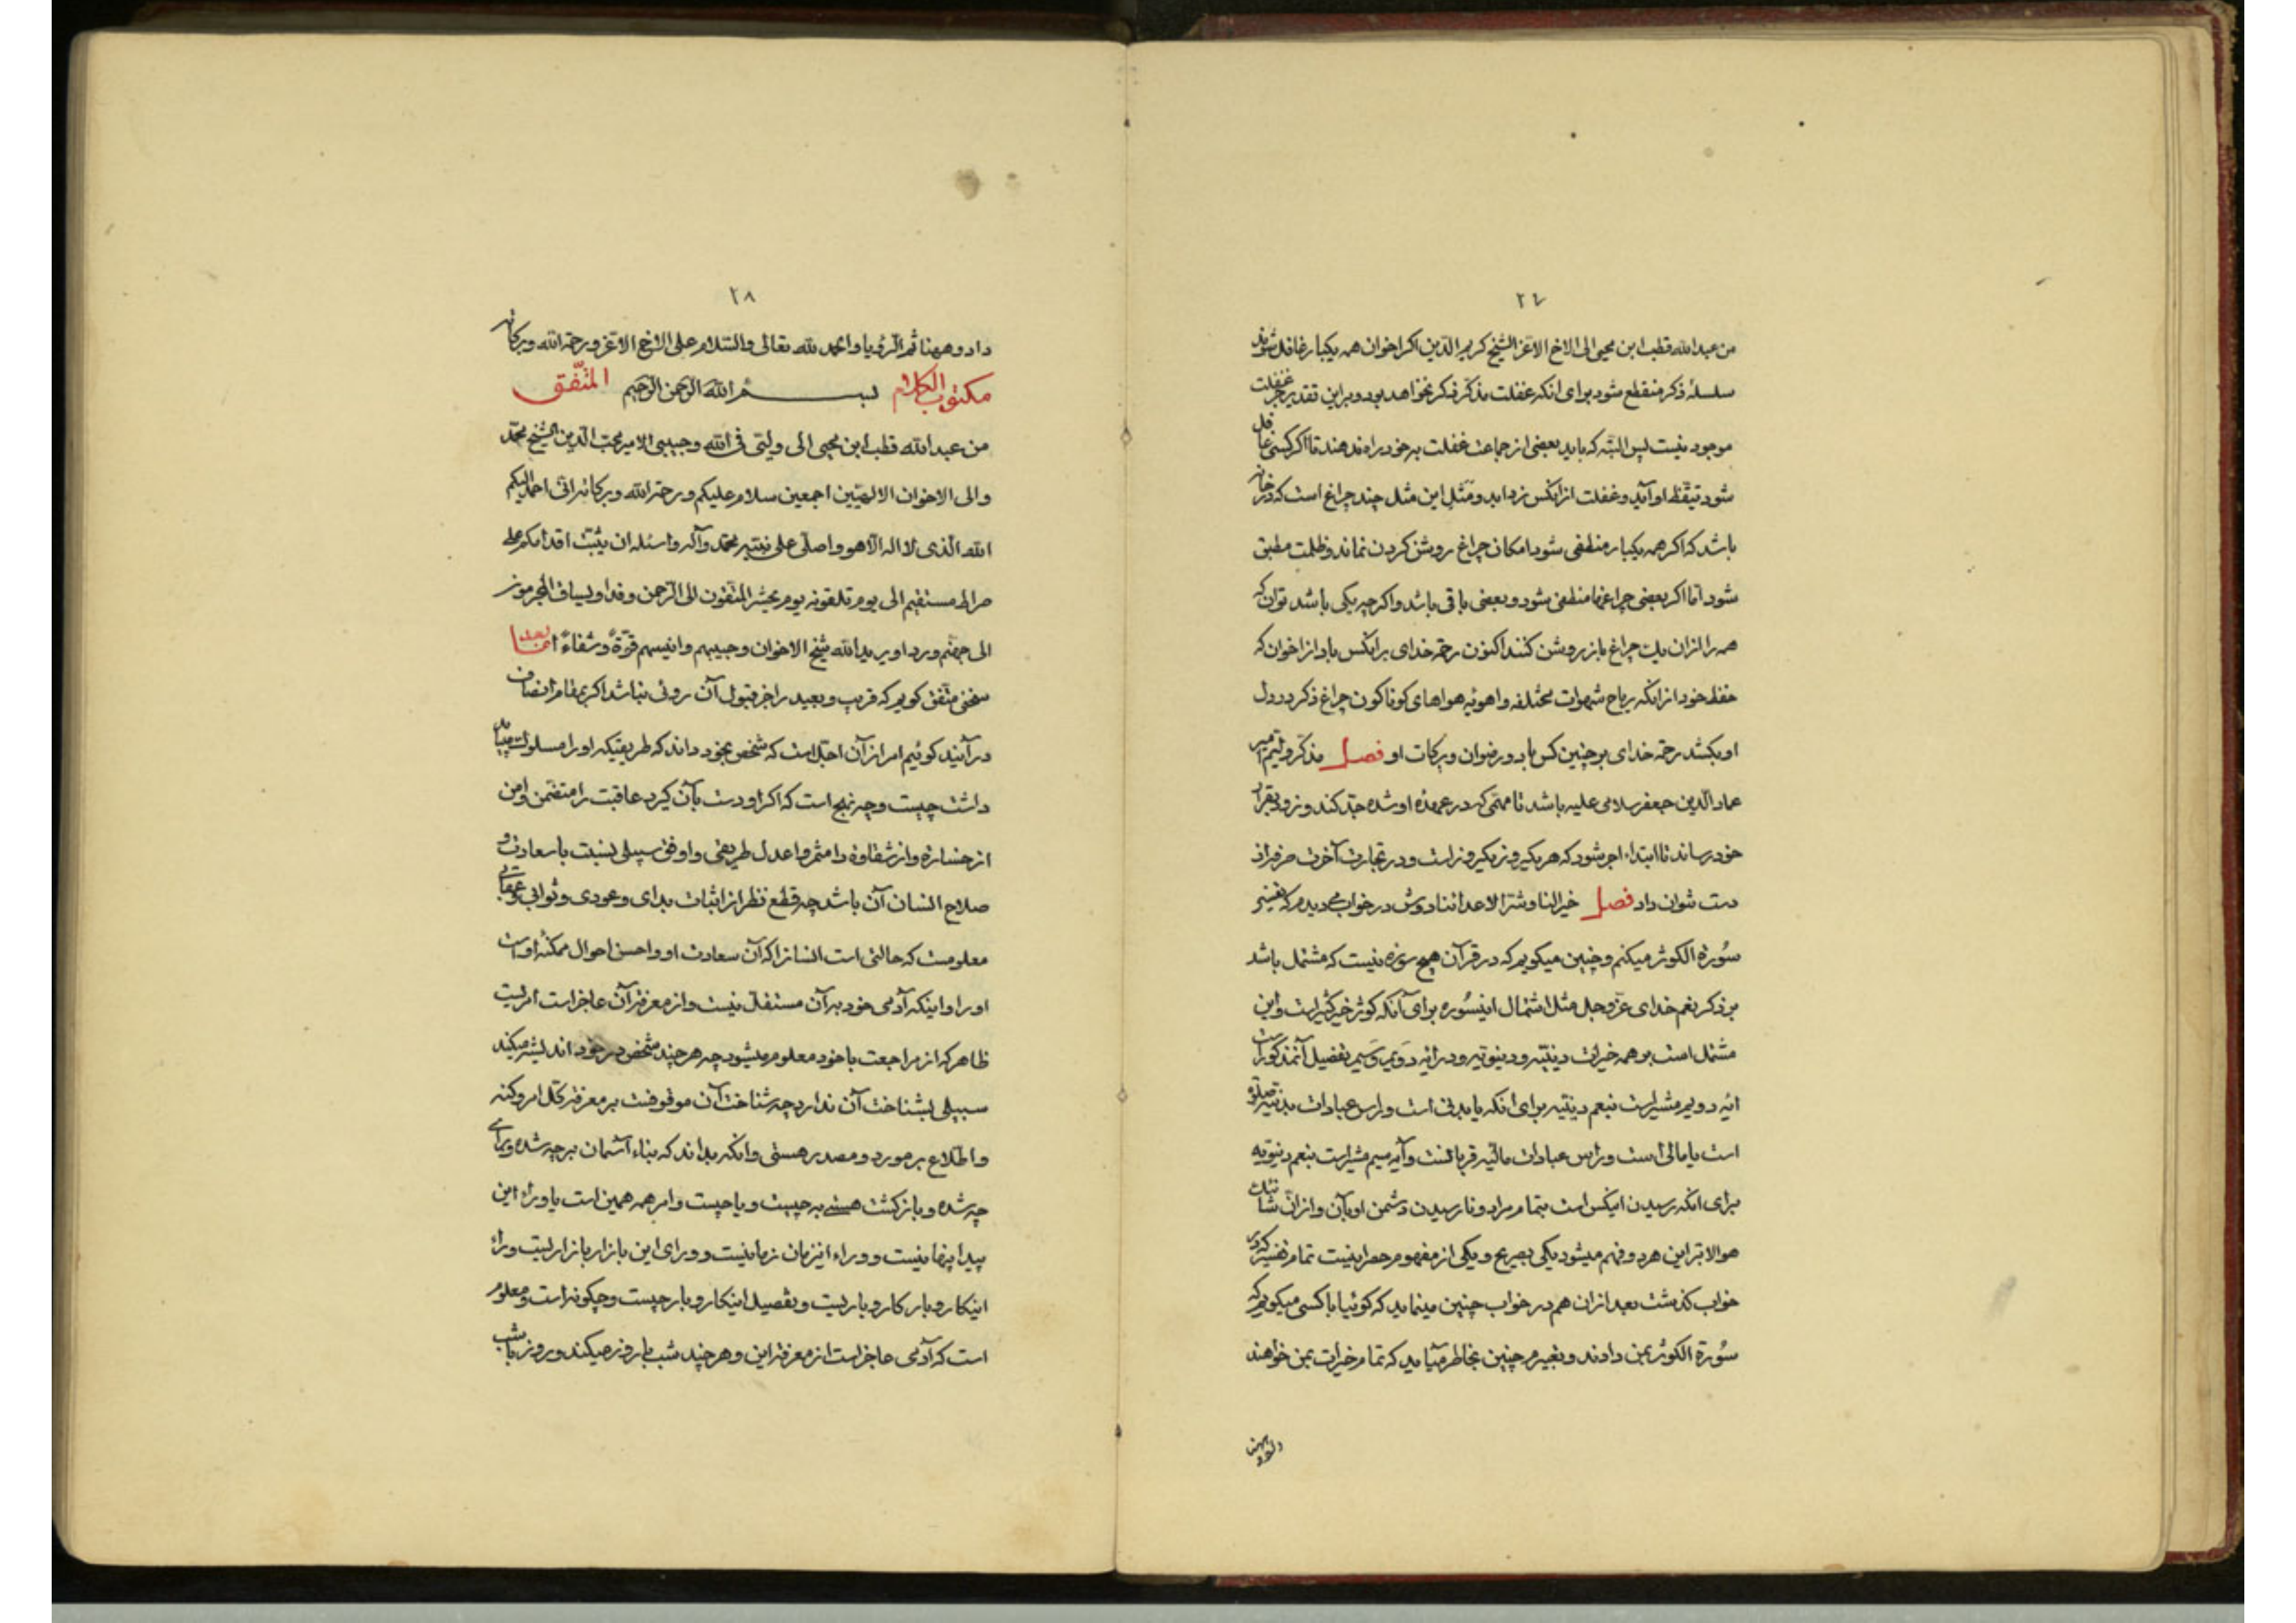 ٢٧
من عبدالله قطب ابن محیی الی الاخ الاعز الشیخ کریم الدین اکر اخوان همه یکبار غافل شوند
سلسلهٔ ذکر منقطع شود برای انکه غفلت مذکر فکر نخواهد بود و براین تقدیر جز غفلت
موجود نیست پس البته که باید بعضی از جماعت غفلت بر خود راه ندهند تا اکر کسی غافل
شود تیقظ او آید و غفلت از انکس زداید و مثل این مثل چند چراغ است که در خانه
باشد که اکر همه یکبار منطفی شود امکان چراغ روشن کردن نماند و ظلمت مطبق
شود امّا اکر بعضی چراغها منطفی شود و بعضی باقی باشد و اکرچه یکی باشد توان که
همه را ازان یک چراغ باز روشن کنند اکنون رحمة خدای بر انکس باد از اخوان که
حفظ خود از انکه ریاح شهوات مختلفه و اهویهٔ هواهای کوناکون چراغ ذکر در دل
او بکشد رحمة خدای بر چنین کس باد و رضوان و برکات او فصل مذکر ولیّم امیر
عماد الدین جعفر سلامی علیه باشد تا مهمّی که در عهدهٔ او شده جدّ کند و زود بقرار
خود رساند تا ابتداء اجر شود که هر یک روز یک روز است و در تجارت آخرت صرفه از
دست نتوان داد فصل خیر لنا و شرّ لاعدائنا دوش در خواب می‌دیدم که تفسیر
سُورة الکوثر میکنم و چنین میکویم که در قرآن هیچ سوره نیست که مشتمل باشد
بر ذکر نعم خدای عزّ و جلّ مثل اشتمال اینسُوره برای آنکه کوثر خیر کثیر است و این
مشتمل است بر همه خیرات دینیّه و دنیویّه و در آیه دویم و سیم تفصیل آنمذکور است
آیه دویم مشیر است بنعم دینیّه برای انکه یا بدنی است و راس عبادات بدنیّه صلوة
است یا مالی است و راس عبادات مالیّه قربانست و آیه سیم مشیر است بنعم دنیویه
برای انکه رسیدن اینکس است بتمام مراد و نارسیدن دشمن او بآن و از انّ شانئک
هو الابتر این هر دو فهم میشود یکی بصریح و یکی از مفهوم حصر اینست تمام تفسیر که در
خواب کذشت بعد ازان هم در خواب چنین مینماید که کوئیا با کسی میکویم که
سُورة الکوثر بمن دادند و بغیرم چنین بخاطر میآید که تمام خیرات بمن خواهند
داد و ههنا
٢٨
داد و ههنا ثم الرؤیا و الحمد لله تعالی و السّلام علی الاخ الاعزّ و رحمة الله و برکاته
مکتوب الکلام بسم الله الرّحمن الرّحیم المتّفق
من عبدالله قطب ابن محیی الی ولیّی فی الله و حبیبی الامیر محب الدین الشیخ محمّد
و الی الاخوان الالهیّین اجمعین سلام علیکم و رحمة الله و برکاته انّی احمد الیکم
الله الّذی لا اله الّا هو و اصلّی علی نبیّه محمّد و آله و اسئله ان یثبّت اقدامکم علی
صراط مستقیم الی یوم تلقونه یوم یحشر المتّقون الی الرّحمن وفدا و یساق المجرمون
الی جهنم وردا و یرید الله شیخ الاخوان و حبیبهم و انیسهم قوّةً و شفاءً امّا بعد
سخنی متّفق کویم که قریب و بعید را جز قبول آن روئی نباشد اکر بمقام انصاف
درآیند کوئیم امر از آن اجلّ است که شخص بخود داند که طریقیکه او را مسلوک میباید
داشت چیست و چه نهج است که اکر او دست بآن کیرد عاقبت را متضمّن و امن
از خسارة و از شقاوة دامثمر و اعدل طریقی و اوفق سبیلی نسبت با سعادت و
صلاح انسان آن باشد چه قطع نظر از اثبات مبدای و عودی و ثوابی و عقابی
معلومست که حالتی است انسانرا که آن سعادت او و احسن احوال ممکنهٔ اوست
او را و اینکه آدمی خود بر آن مستقلّ نیست و از معرفت آن عاجز است امریست
ظاهر که از مراجعت باخود معلوم میشود چه هر چند شخص در خود اندیشه میکند
سبیلی بشناخت آن ندارد چه شناخت آن موقوفست بر معرفت کلّ امر و کنه
و اطّلاع بر مورد و مصدر هستی و انکه بداند که بناء آسمان بر چه شده و برای
چه شده و بازکشت هستی به چیست و یا چیست و امر همه همین است یا وراء این
پیدا پنهانیست و وراء اینزمان زمانیست و ورای این بازار بازاریست و راء
اینکار و بار کار و باریست و تفصیل اینکار و بار چیست و چکونه است و معلوم
است که آدمی عاجز است از معرفت این و هر چند شب با روز میکند و روز با شب